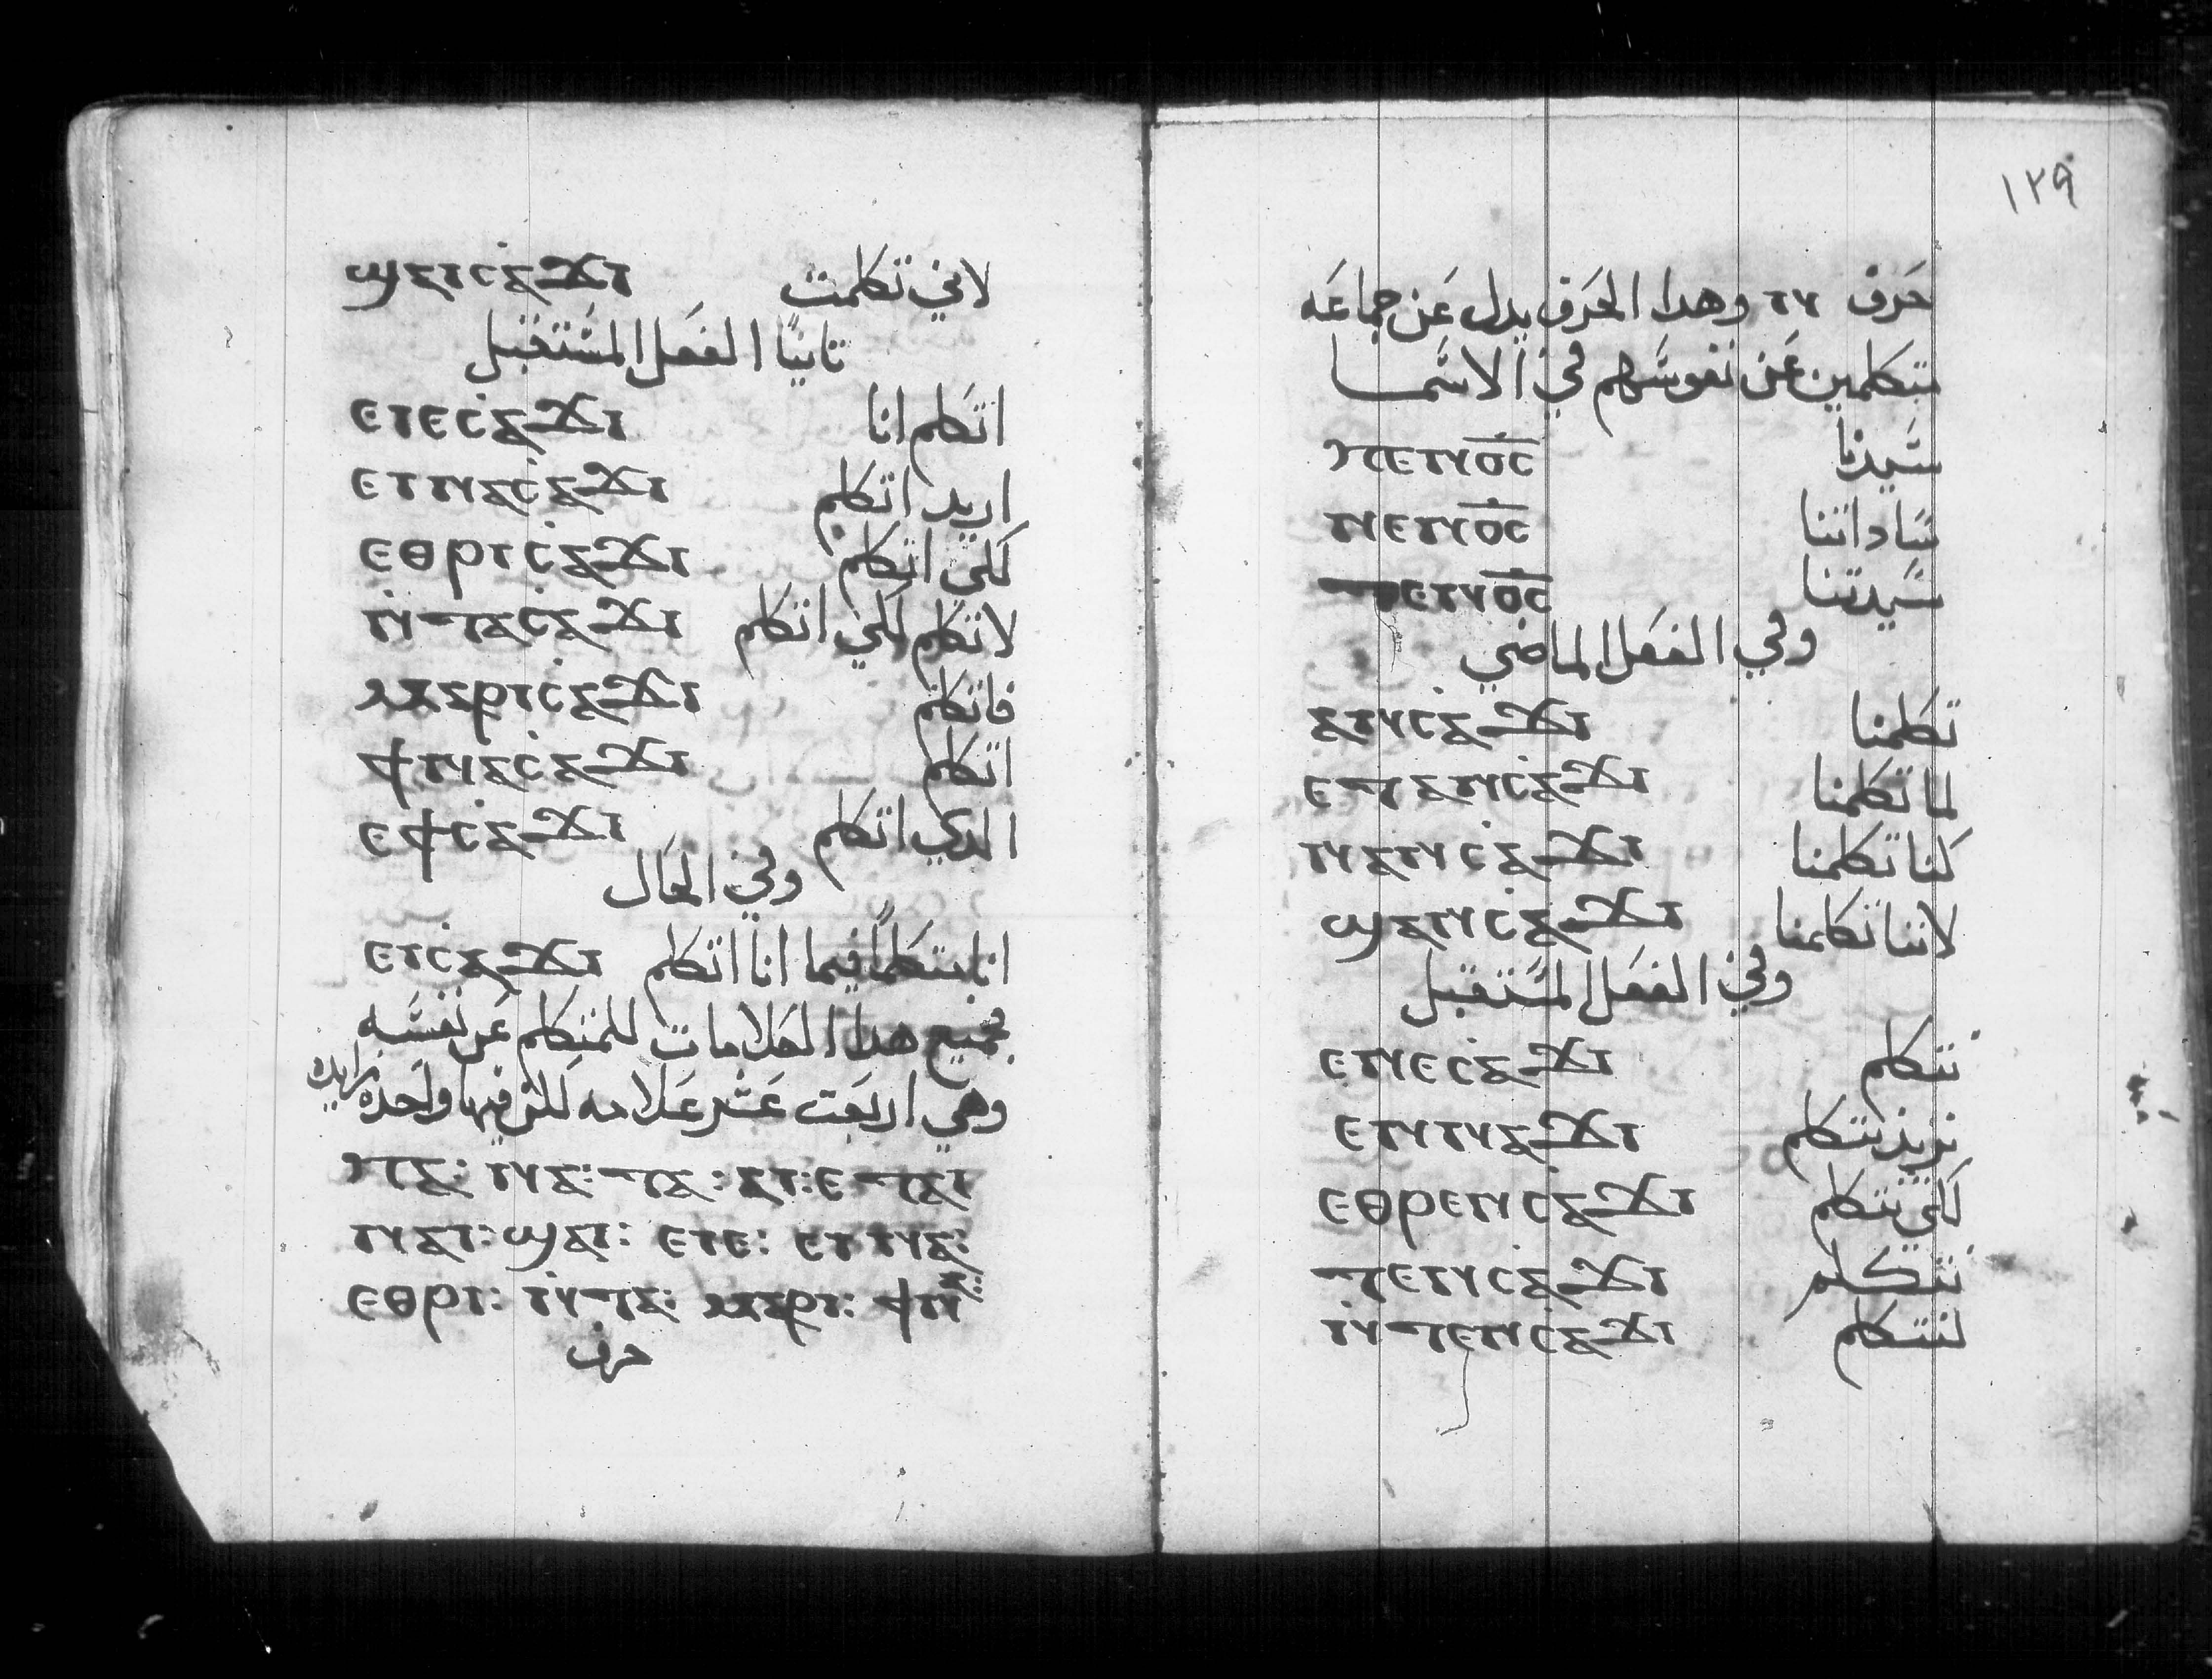 لاني تكلمت ϣⲁⲓⲥ̇ⲁϫⲓ
تانيًا الفعل المستقبل
اتكلم انا ⲉⲓⲉⲥ̇ⲁϫⲓ
اريد اتكلم ⲉⲓⲛⲁⲥ̇ⲁϫⲓ
لكي اتكلم ⲉⲑⲣⲓⲥ̇ⲁϫⲓ
لاتكلم لكي اتكلم ⲛ̇ⲧⲁⲥ̇ⲁϫⲓ
فاتكلم ⲙⲁⲣⲓⲥ̇ⲁϫⲓ
اتكلم ϯⲛⲁⲥ̇ⲁϫⲓ
الدي اتكلم ⲉϯⲥ̇ⲁϫⲓ
وفي الحال
انا متكلمًا فيما انا اتكلم ⲉⲓⲥ̇ⲁϫⲓ
فجميع هدا العلامات للمتكلم عن نفسه
وهي اربعت عشر علامه لكن فيها واحده زايده
ⲡⲁ: ⲛⲁ: ⲧⲁ: ⲁⲓ: ⲉⲧⲁⲓ
ⲛⲁⲓ: ϣⲁⲓ: ⲉⲓⲉ: ⲉⲓⲛⲁ:
ⲉⲑⲣⲓ: ⲛ̇ⲧⲁ: ⲙⲁⲣⲓ: ϯⲛⲁ:
حرف
١٢٩
حرف ⲛ وهدا الحرف يدل عن جماعه
متكلمين عن نفوسهم في الاسما
سيدنا ⲡⲉⲛⲟ̅ⲥ̅
ساداتنا ⲛⲉⲛⲟ̅ⲥ̅
سيدتنا ⲧⲉⲛⲟ̅ⲥ̅
وفي الفعل الماضي
تكلمنا ⲁⲛⲥ̇ⲁϫⲓ
لما تكلمنا ⲉⲧⲁⲛⲥ̇ⲁϫⲓ
كنا تكلمنا ⲛⲁⲛⲥ̇ⲁϫⲓ
لاننا تكلمنا ϣⲁⲛⲥ̇ⲁϫⲓ
وفي الفعل المستقبل
نتكلم ⲉⲛⲉⲥ̇ⲁϫⲓ
نريد نتكلم ⲉⲛⲛⲁϫⲓ
لكي نتكلم ⲉⲑⲣⲉⲛⲥ̇ⲁϫⲓ
نتكلم ⲧⲉⲛⲥ̇ⲁϫⲓ
لنتكلم ⲛ̇ⲧⲉⲛⲥ̇ⲁϫⲓ